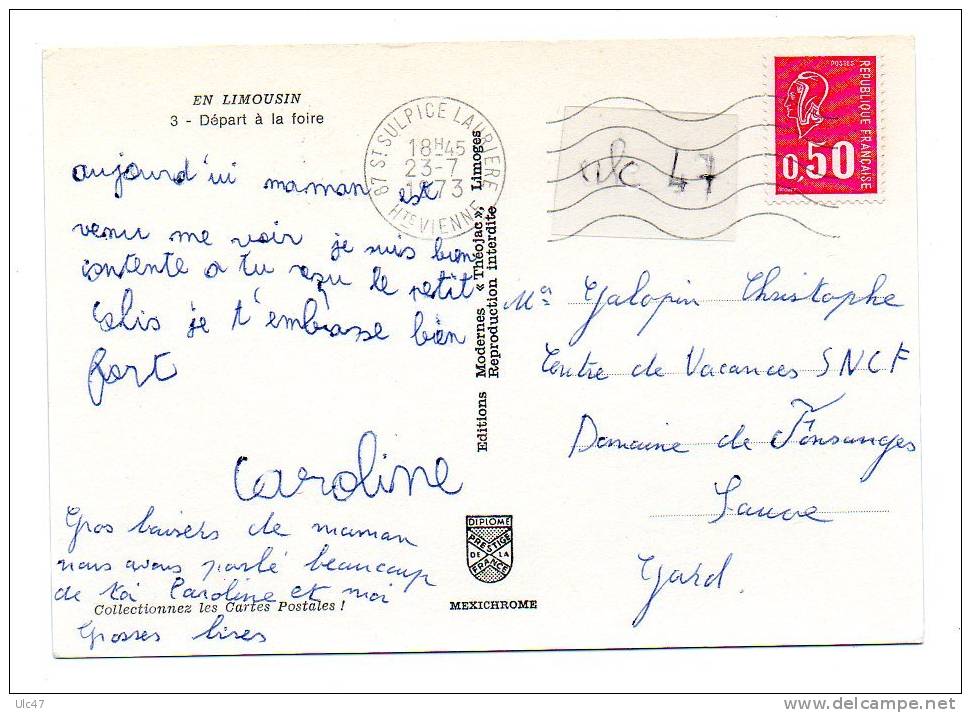 EN LIMOUSIN
3 - Départ à la foire
aujourd'ui maman est
venu me voir je suis bien
contente a tu reçu le petit
Colis je t'embrasse bien
fort
Caroline
Gros baisers de maman
nous avons parlé beaucoup
de toi Caroline et moi
Collectionnez les Cartes Postales !
Grosses bises
87 ST SULPICE LAURIERE
18H45
23-7
1973
HTE VIENNE
Editions Modernes « Théojac », Limoges
Reproduction interdite
DIPLOME
PRESTIGE
DE LA
FRANCE
MEXICHROME
ulc 47
POSTES
REPUBLIQUE FRANÇAISE
0,50
Galopin Christophe
Centre de Vacances SNCF
Domaine de Fonsanges
Sauve
Gard.
Ulc47
www.delcampe.net